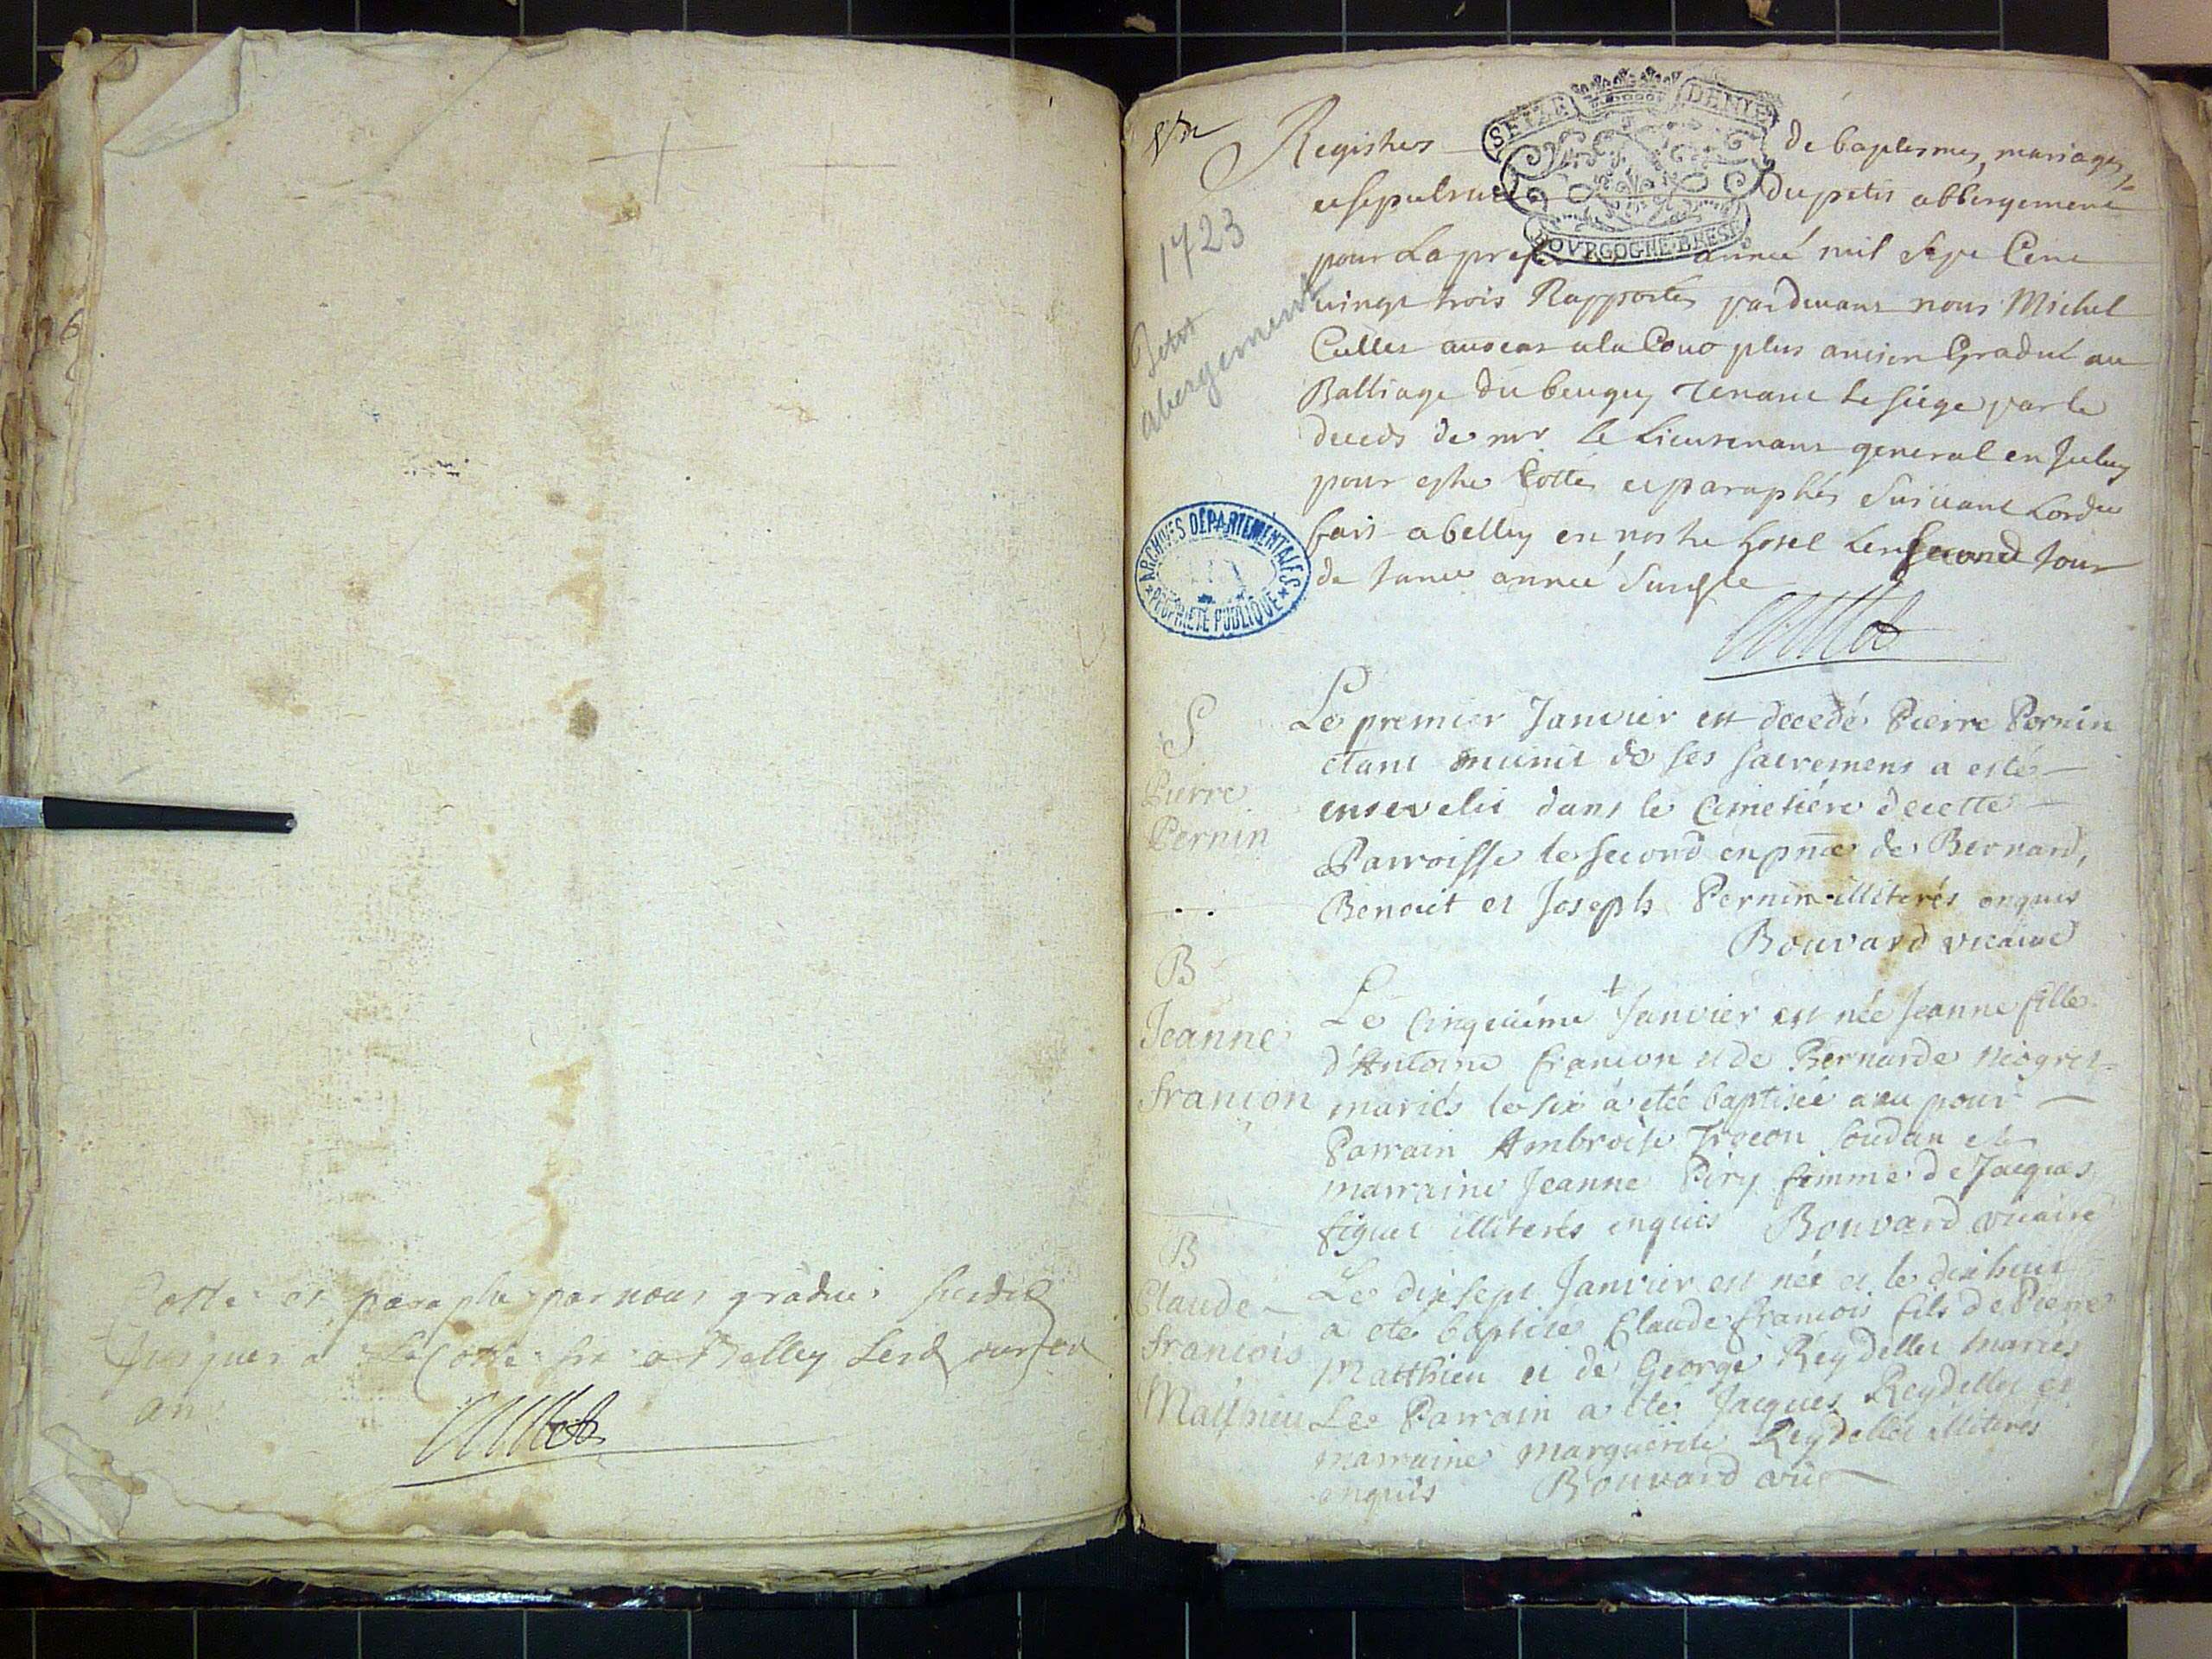 Cotté et paraphé par nous gradué susdit
jusques a la Cotte six a Belley lesd jour et
an
Vn
1723
Petit
abergement
SEIZE DENIE
BOVRGOGNE BRESE
Registres de baptesmes, mariages,
et sepultures du petit abbergement
pour La pres année mil sept Cent
vingt trois Rapportés pardevant nous Michel
Cullet avocat a la Cour plus ancien Gradué au
Balliage du beugey tenant le siege par le
deceds de mr le Lieutenant general en
pour estre Cottés et paraphés suivant Lordre
fait a belley en nostre hotel le second Jour
de Janer année susdte
ARCHIVES DÉPARTEMENTALES
PROPRIÉTÉ PUBLIQUE
S
Pierre
Pernin
Le premier Janvier est decedé Pierre Pernin
etant munit de ses sacremens a esté
enseveli dans le Cimetiére de cette
Parroisse le second en pnce de Bernard,
Benoit et Joseph Pernin illiterés enquis
Bouvard vicaire
B
Jeanne
francon
Le Cinquiéme Janvier est née Jeanne fille
d'Antoine francon et de Bernarde
mariés le six a eté baptisée a eu pour
Parrain Ambroise et
marraine Jeanne Piry femme de Jacques
illiterés enquis Bouvard vicaire
B
Claude
francois
Matthieu
Le dix sept Janvier est née et le dix huit
a eté baptisé Claude francois fils de Pierre
Matthieu et de George Reydellet mariés
Le Parrain a eté Jacques Reydellet et
marraine marguerite Reydellet illiteres
enquis Bouvard vic